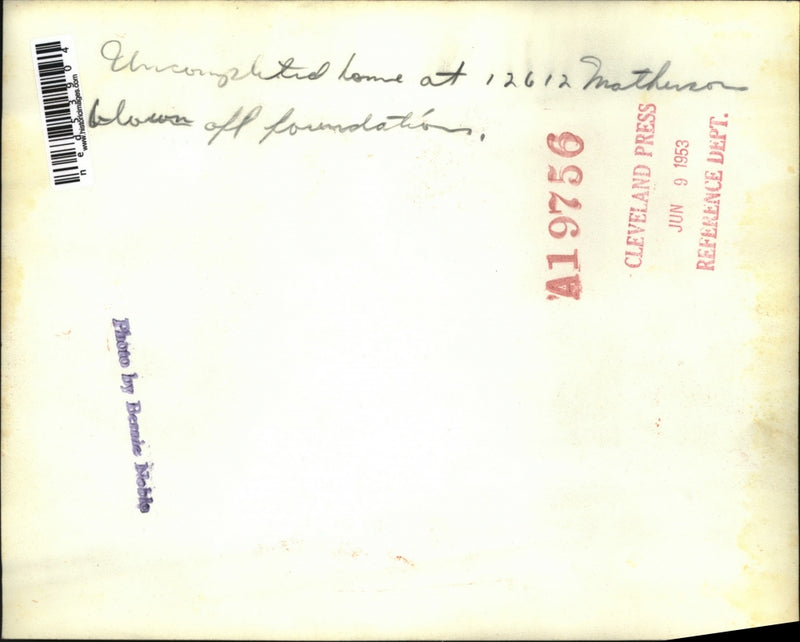 Uncompleted home at 12612 Matherson
blown off foundation.
ned5 3904
www.historicimages.com
A19756
CLEVELAND PRESS
JUN 9 1953
REFERENCE DEPT.
Photo by Bernie Noble